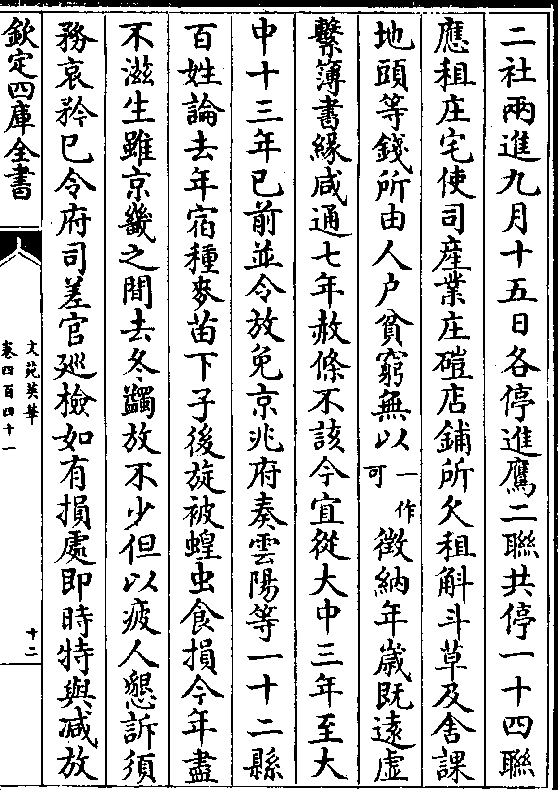 二社兩進九月十五日各停進鷹二聯共停一十四聯
應租庄宅使司産業庄磑店鋪所欠租斛斗草及舎課
地頭等錢所由人户貧窮無以一作可徵納年歲既逺虚
繫簿書緣咸通七年赦條不該今宜從大中三年至大
中十三年已前並令放免京兆府奏雲陽等一十二縣
百姓論去年宿種麥苗下子後旋被蝗虫食損今年盡
不滋生雖京畿之間去冬蠲放不少但以疲人懇訴須
務哀矜已令府司差官廵檢如有損處即時特與减放
欽定四庫全書
文苑英華
卷四百四十一
十二